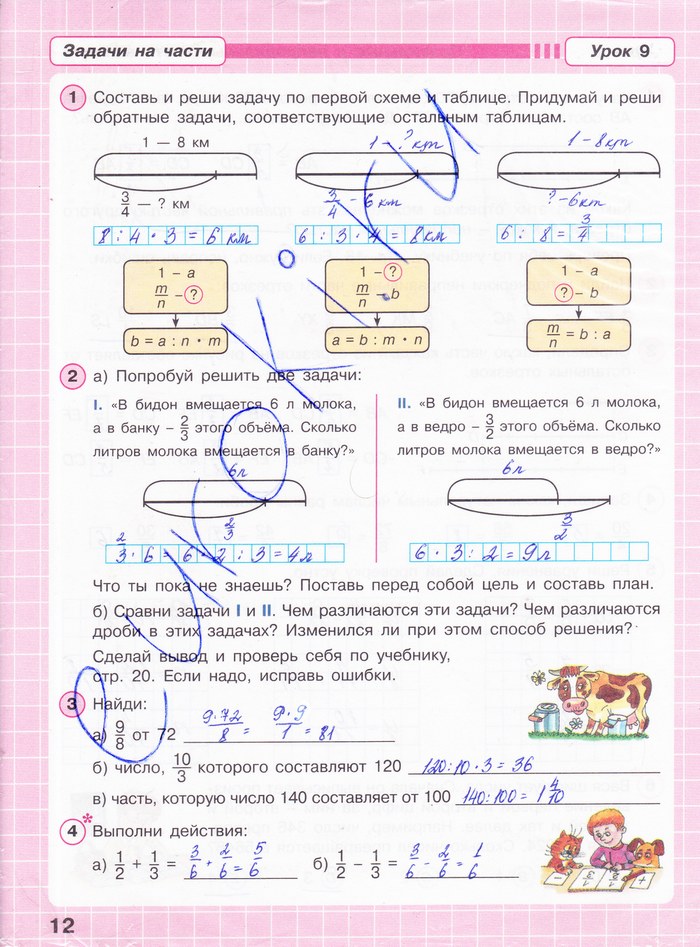 Задачи на части
Урок 9
1 Составь и реши задачу по первой схеме и таблице. Придумай и реши
обратные задачи, соответствующие остальным таблицам.
1 — 8 км
1 - ? км
1 - 8 км
3/4 — ? км
3/4 - 6 км
? - 6 км
8 : 4 · 3 = 6 км
6 : 3 · 4 = 8 км
6 : 8 = 3/4
1 – a
m/n – ?
1 – ?
m/n – b
1 – a
? – b
b = a : n · m
a = b : m · n
m/n = b : a
2 а) Попробуй решить две задачи:
I. «В бидон вмещается 6 л молока,
а в банку – 2/3 этого объёма. Сколько
литров молока вмещается в банку?»
II. «В бидон вмещается 6 л молока,
а в ведро – 3/2 этого объёма. Сколько
литров молока вмещается в ведро?»
6л
6л
2/3
3/2
2/3 · 6 = 6 · 2 : 3 = 4л
6 · 3 : 2 = 9л
Что ты пока не знаешь? Поставь перед собой цель и составь план.
б) Сравни задачи I и II. Чем различаются эти задачи? Чем различаются
дроби в этих задачах? Изменился ли при этом способ решения?
Сделай вывод и проверь себя по учебнику,
стр. 20. Если надо, исправь ошибки.
3 Найди:
а) 9/8 от 72 9·72/8 = 9·9/1 = 81
б) число, 10/3 которого составляют 120 120:10·3 = 36
в) часть, которую число 140 составляет от 100 140:100 = 1 4/10
4* Выполни действия:
а) 1/2 + 1/3 = 3/6 + 2/6 = 5/6
б) 1/2 – 1/3 = 3/6 - 2/6 = 1/6
12